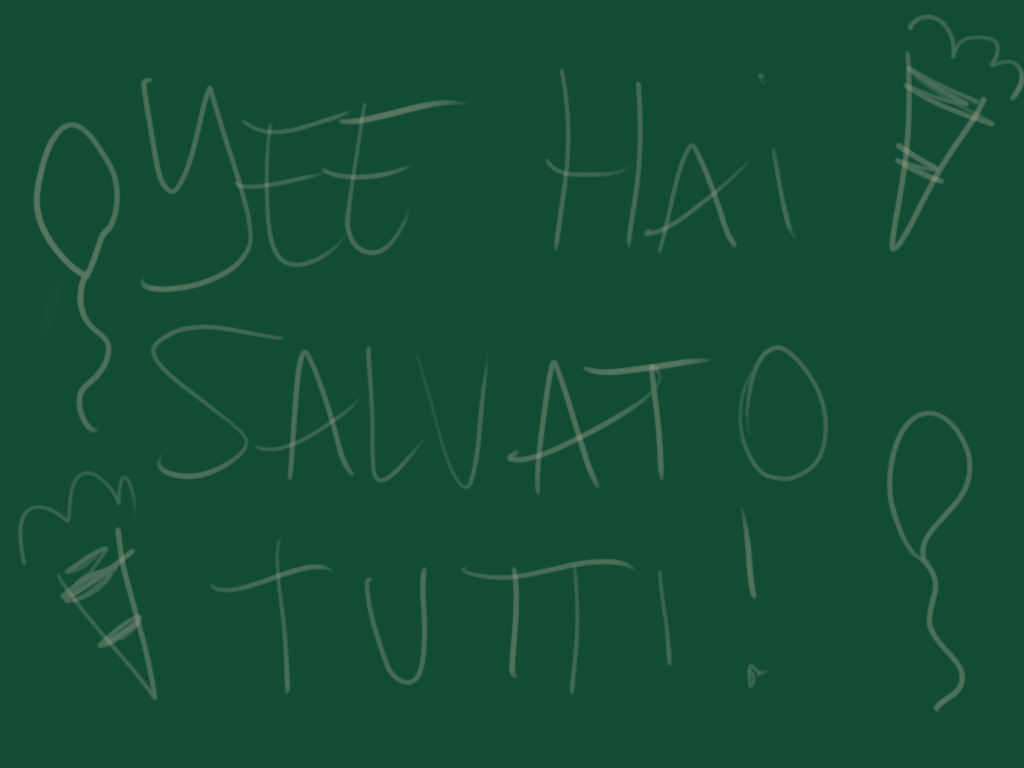 YEE HAI
SALVATO
TUTTI!